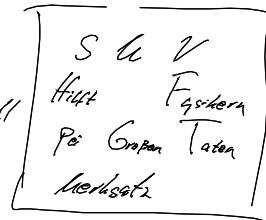 S U V
Hilft Fysikern
Pei Großen Taten
Merksatz